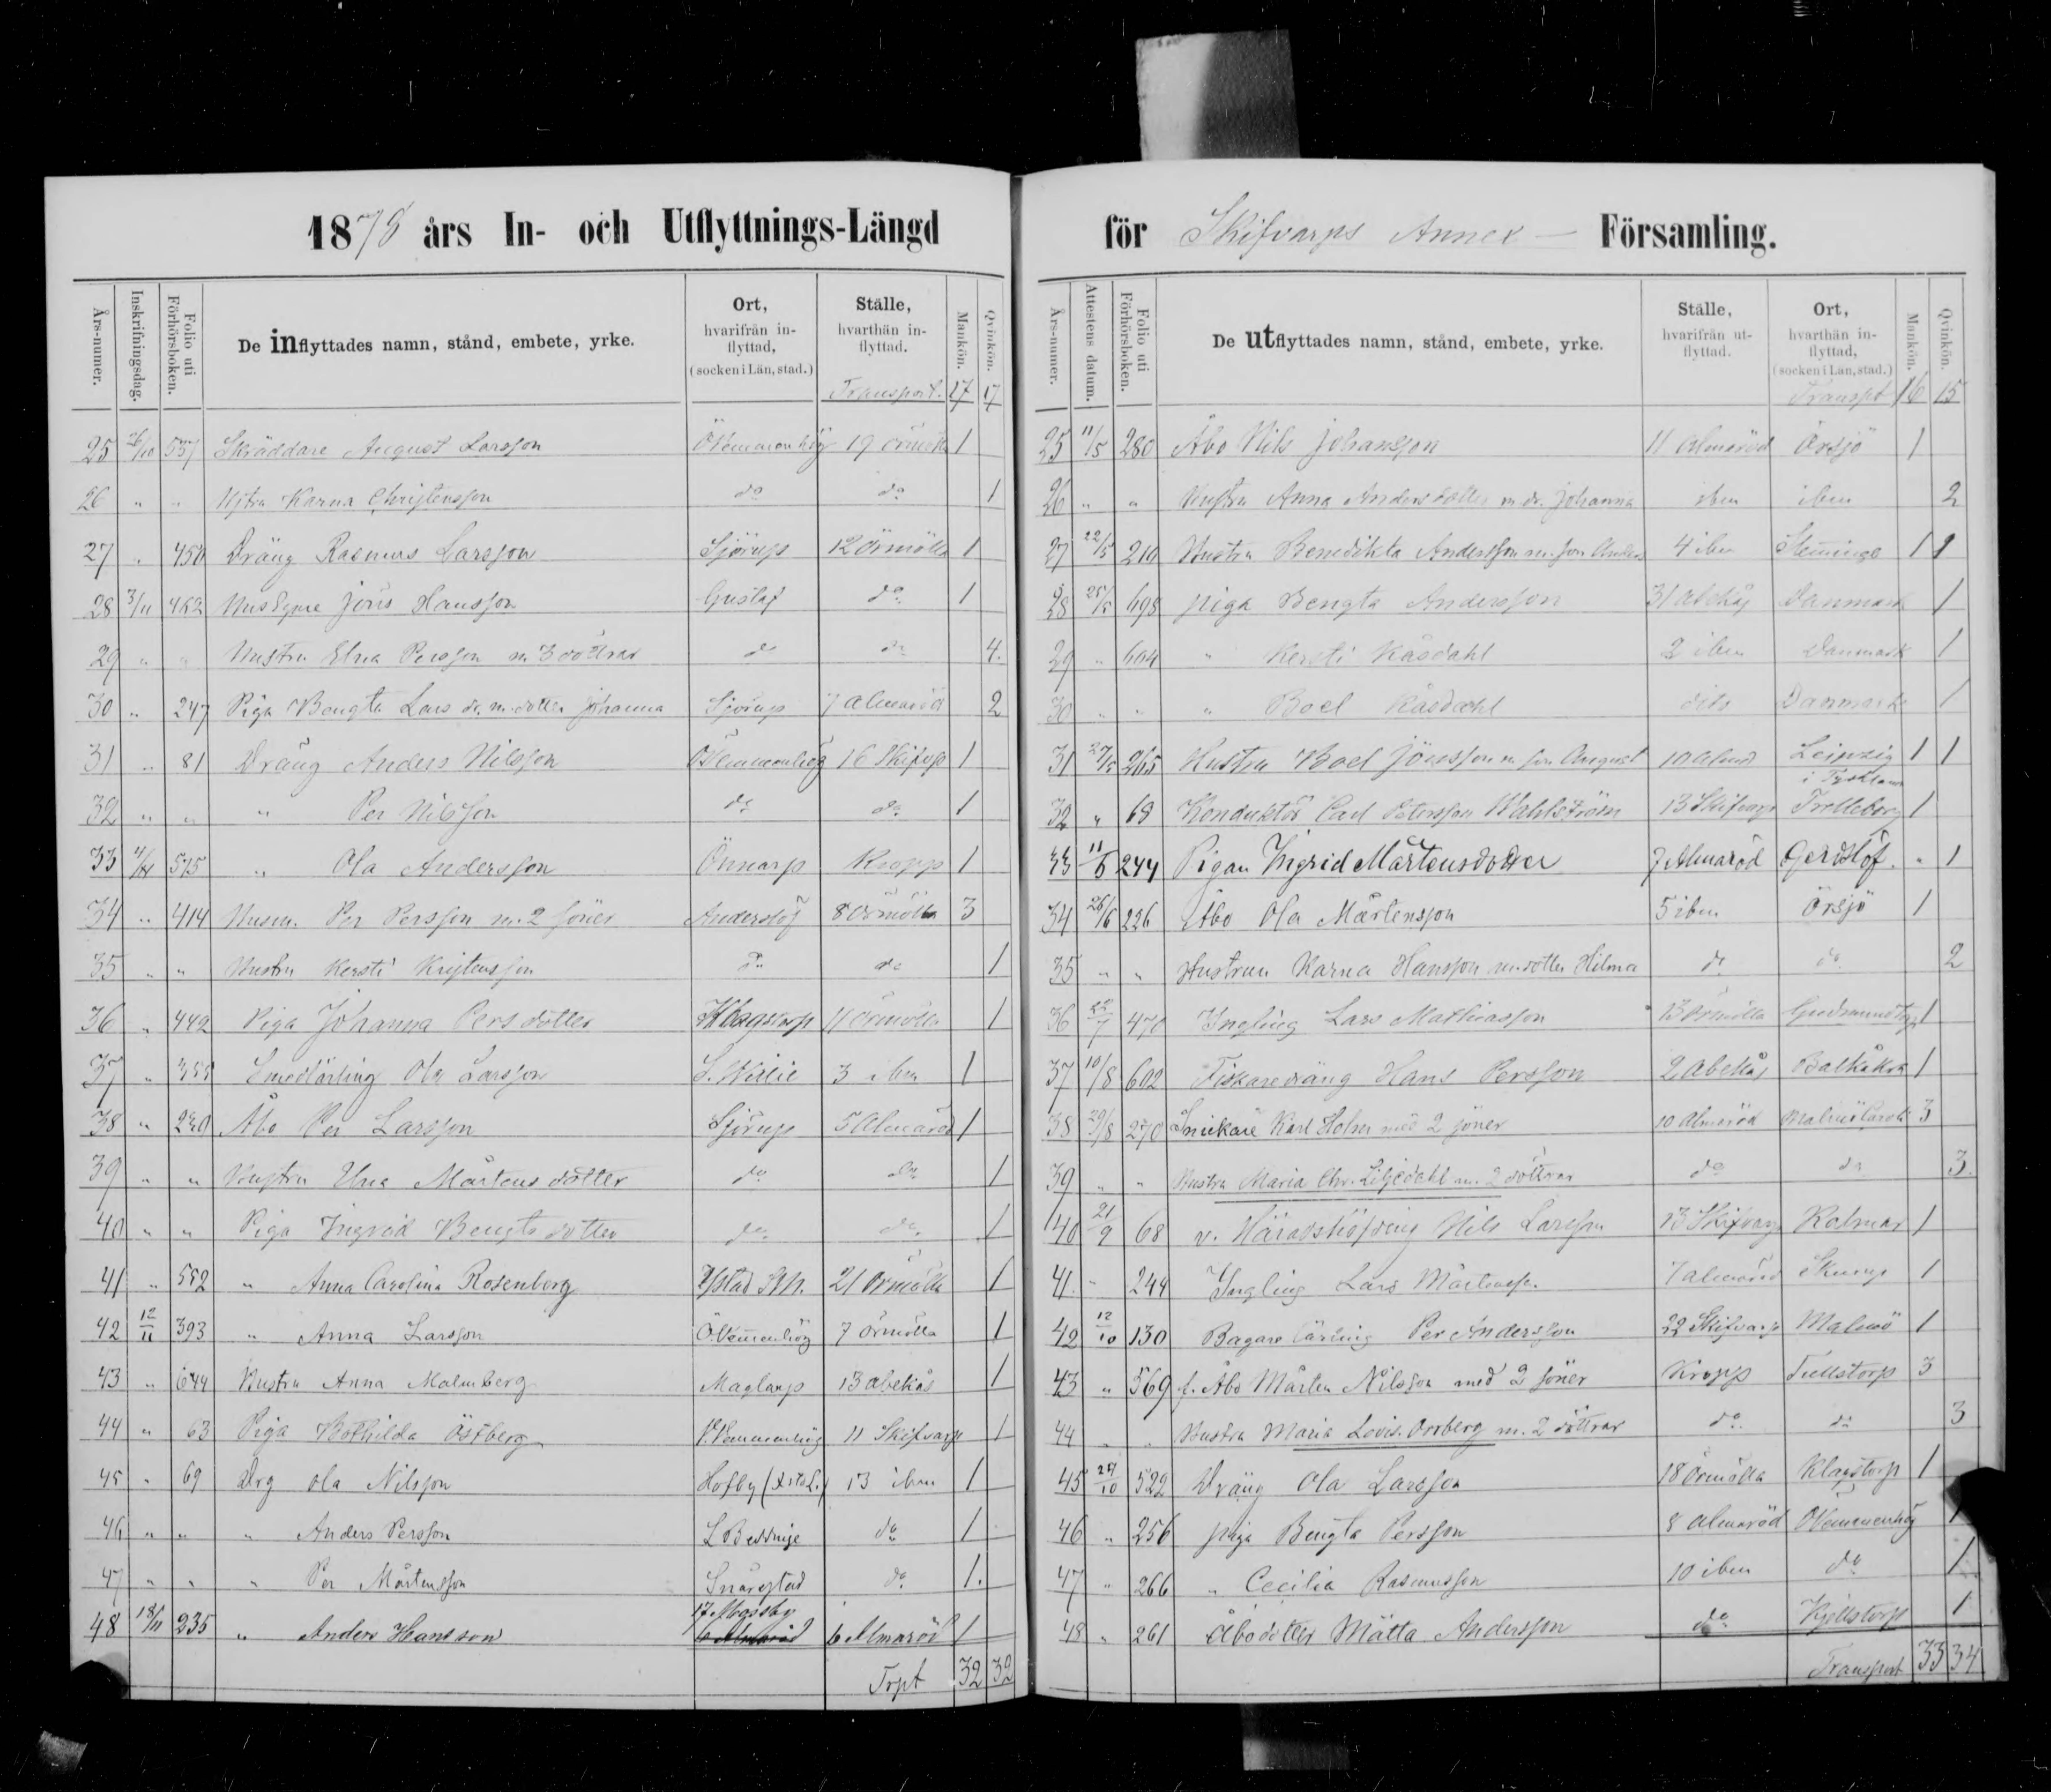 1878 års In- och Utflyttnings-Längd
Års-numer. Inskrifningsdag. Folio uti Förhörsboken. De inflyttades namn, stånd, embete, yrke. Ort, hvarifrån in-flyttad, (socken i Län, stad.) Ställe, hvarthän in-flyttad. Mankön. Qvinkön.
Transport. 17 17
25 26/10 537 Skräddare August Larsson Ö Vemmenhög 19 Örmölla 1
26 " " Hstru Karna Christensson do do 1
27 " 450 Dräng Rasmus Larsson Sjörup 12 Örmölla 1
28 3/11 462 Jöns Hansson Gustaf do 1
29 " " Hustru Elna Persson m 3 döttrar do do 4.
30 " 247 Piga Bengta Lars dr. m. dotter Johanna Sjörup 7 Almaröd 2
31 " 81 Dräng Anders Nilsson Ö Vemmenhög 16 Skifvp 1
32 " " " Per Nilsson do do 1
33 515 " Ola Andersson Önnarp Kropp 1
34 " 414 Husm. Per Persson m. 2 söner Anderslöf 8 Örmölla 3
35 " " Hustru Kersti Kristensson do do 1
36 " 442 Piga Johanna Persdotter Klagstorp 11 Örmölla 1
37 " Smedlärling Ola Larsson S. Willie 3 iben 1
38 " 240 Åbo Per Larsson Sjörup 5 Almaröd 1
39 " " Hustru Elna Mårtensdotter do do 1
40 " " Piga Ingrid Bengtsdotter do do 1
41 " 552 " Anna Carolina Rosenborg Ystad 21 Örmölla 1
42 12/11 393 " Anna Larsson Ö. Vemmenhög 7 Örmölla 1
43 " 644 Hustru Anna Malmberg Maglarp 13 Abekås 1
44 " 63 Piga Bothilda Östberg V. Vemmenhög 11 Skifvarp 1
45 " 69 Drg Ola Nilsson Hofby 13 iben 1
46 " " " Anders Persson L Beddinge do 1
47 " " " Per Mårtensson Snårestad do 1.
48 18/11 235 " Anders Hansson 17 Mossby 6 Almaröd 6 Almaröd 1
Trpt 32 32
för Skifvarps Annex — Församling.
Års-numer. Attestens datum. Folio uti Förhörsboken. De utflyttades namn, stånd, embete, yrke. Ställe, hvarifrån ut-flyttad. Ort, hvarthän in-flyttad, (socken i Län, stad.) Mankön. Qvinkön.
Transpt 16 15
25 11/5 280 Åbo Nils Johansson 11 Almaröd Örsjö 1
26 " " Hustru Anna Andersdotter m. dr. Johanna iben iben 2
27 22/5 210 Hustru Benedikta Andersson m. son Anders 4 iben 1 1
28 25/5 698 Piga Bengta Andersson 31 Abekås Danmark 1
29 " 604 " Kersti Kåsdahl 2 iben Danmark 1
30 " " " Boel Kåsdahl dito Danmark 1
31 27/5 265 Hustru Boel Jönsson m. son August 10 Almrd Leipzig i Tyskland 1 1
32 " 68 Konduktör Carl Petersson Wahlström 13 Skifvarp Trelleborg 1
33 11/6 244 Pigan Ingrid Mårtensdotter 7 Almaröd Gerdslöf. " 1
34 26/6 226 Åbo Ola Mårtensson 5 iben Örsjö 1
35 " " Hustrun Karna Hansson m. dotter Hilma do do 2
36 470 Yngling Lars Mathiasson 13 Örmölla 1
37 10/8 602 Fiskaredräng Hans Persson 2 Abekås Balkåkra 1
38 29/8 270 Snickare Karl Holm med 2 söner 10 Almaröd Malmö Caroli 3
39 " " Hustru Maria Chr. Liljedahl m. 2 döttrar do do 3.
40 21/9 68 v. Häradshöfding Nils Larsson 13 Skifvarp Kalmar 1
41 " 244 Yngling Lars Mårtensson 7 Almaröd Skurup 1
42 12/10 130 Bagare lärling Per Andersson 22 Skifvarp Malmö 1
43 " 569 f. Åbo Mårten Nilsson med 2 söner Kropp Tullstorp 3
44 " " Hustru Maria Lovis. Orrberg m. 2 döttrar do do 3
45 27/10 522 Dräng Ola Larsson 18 Örmölla Klagstorp 1
46 " 256 Piga Bengta Persson 8 Almaröd Ö Vemmenhög 1
47 " 266 " Cecilia Rasmusson 10 iben do 1
48 " 261 Åbodotter Mätta Andersson do Kjellstorp 1
Transport 33 34